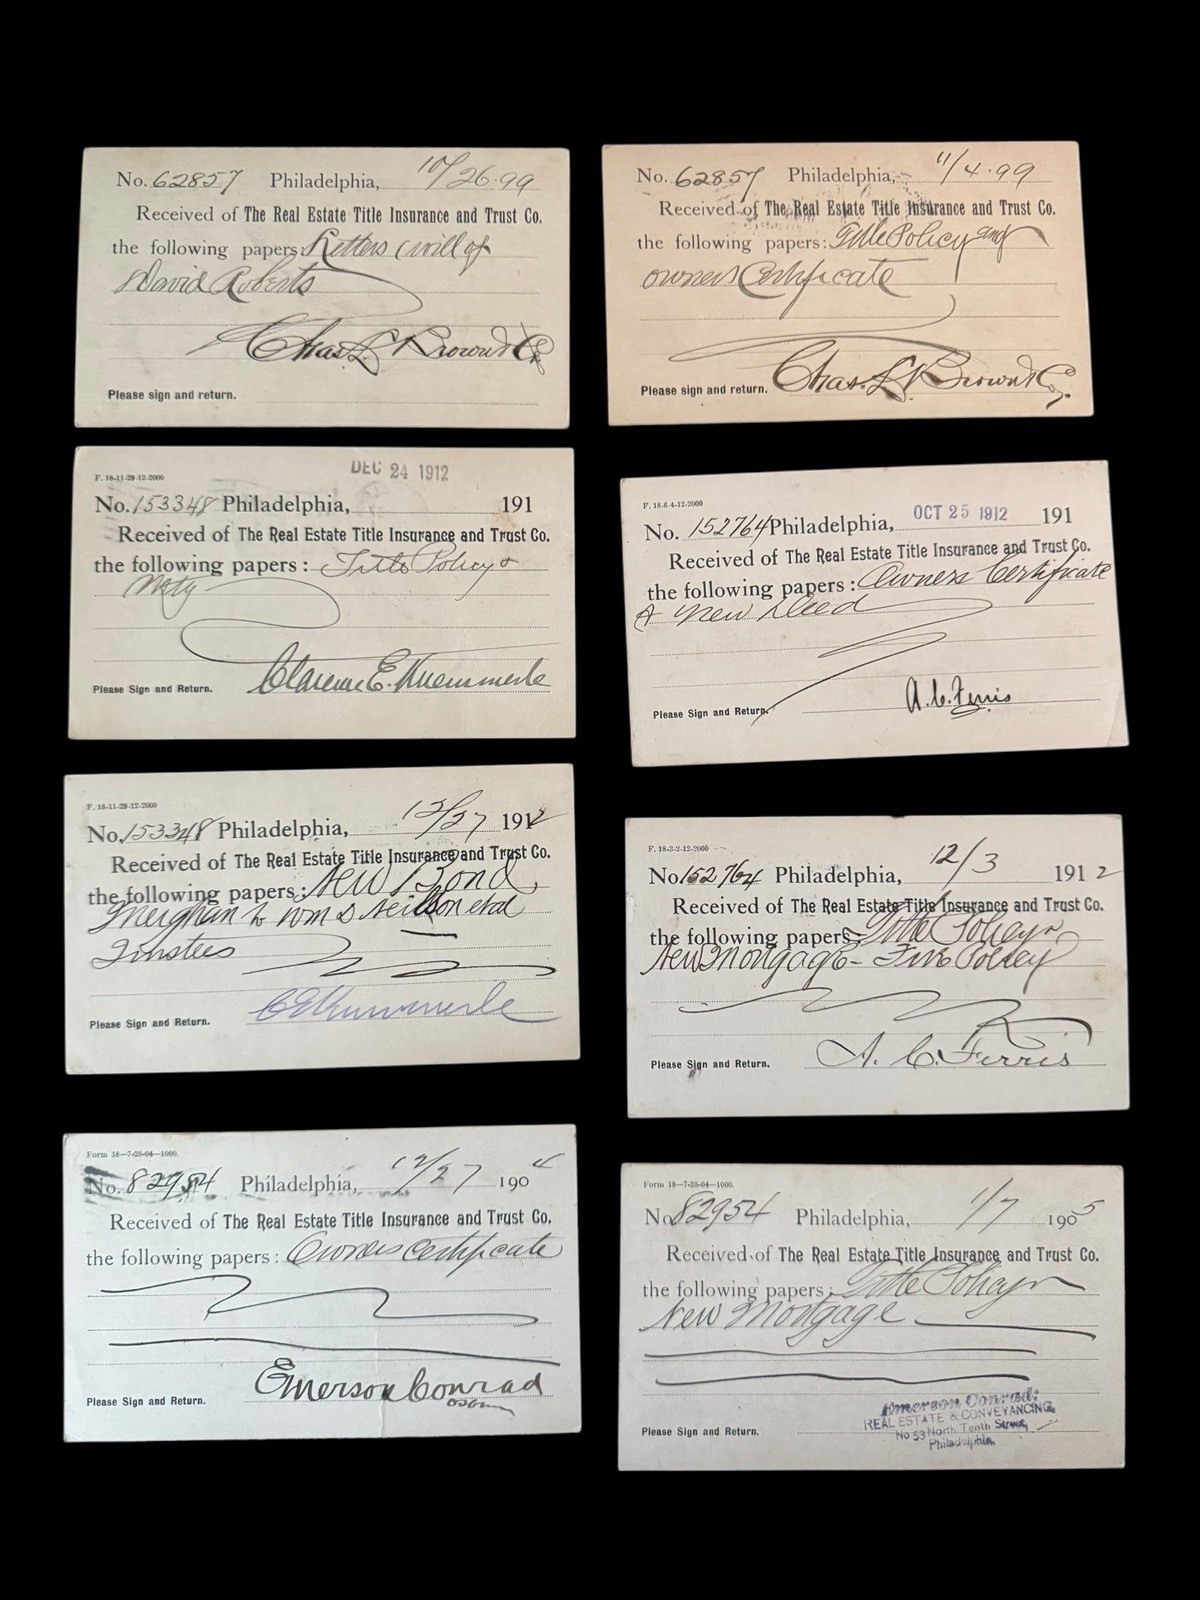 No. 62857 Philadelphia, 10/26.99
Received of The Real Estate Title Insurance and Trust Co.
the following papers: Letters (will of
David Roberts
Chas. L. Brown & Co.
Please sign and return.
No. 62857 Philadelphia, 11/4.99
Received of The Real Estate Title Insurance and Trust Co.
the following papers: Title Policy and
owners Certificate
Chas. L. Brown & Co.
Please sign and return.
F. 18-11-29-12-2000
DEC 24 1912
No. 153348 Philadelphia, 191
Received of The Real Estate Title Insurance and Trust Co.
the following papers: Title Policy &
Mtg
Clarence E. Kuemmerle
Please Sign and Return.
F. 18-6-4-12-2000
No. 152764 Philadelphia, OCT 25 1912 191
Received of The Real Estate Title Insurance and Trust Co.
the following papers: Owners Certificate
& New Deed
A. C. Ferris
Please Sign and Return.
F. 18-11-29-12-2000
No. 153348 Philadelphia, 12/27 1912
Received of The Real Estate Title Insurance and Trust Co.
the following papers: New Bond,
Meighan to Wm S Neilson et al
Trustees
C E Kuemmerle
Please Sign and Return.
F. 18-3-2-12-2000
No. 152764 Philadelphia, 12/3 1912
Received of The Real Estate Title Insurance and Trust Co.
the following papers: Title Policy
New Mortgage - Fire Policy
A. C. Ferris
Please Sign and Return.
Form 18—7-28-04—1000.
No. 82954 Philadelphia, 12/27 1904
Received of The Real Estate Title Insurance and Trust Co.
the following papers: Owners Certificate
Emerson Conrad
Please Sign and Return.
Form 18—7-28-04—1000.
No. 82954 Philadelphia, 1/7 1905
Received of The Real Estate Title Insurance and Trust Co.
the following papers: Title Policy
New Mortgage
Emerson Conrad:
REAL ESTATE & CONVEYANCING,
No 53 North Tenth Street,
Philadelphia.
Please Sign and Return.